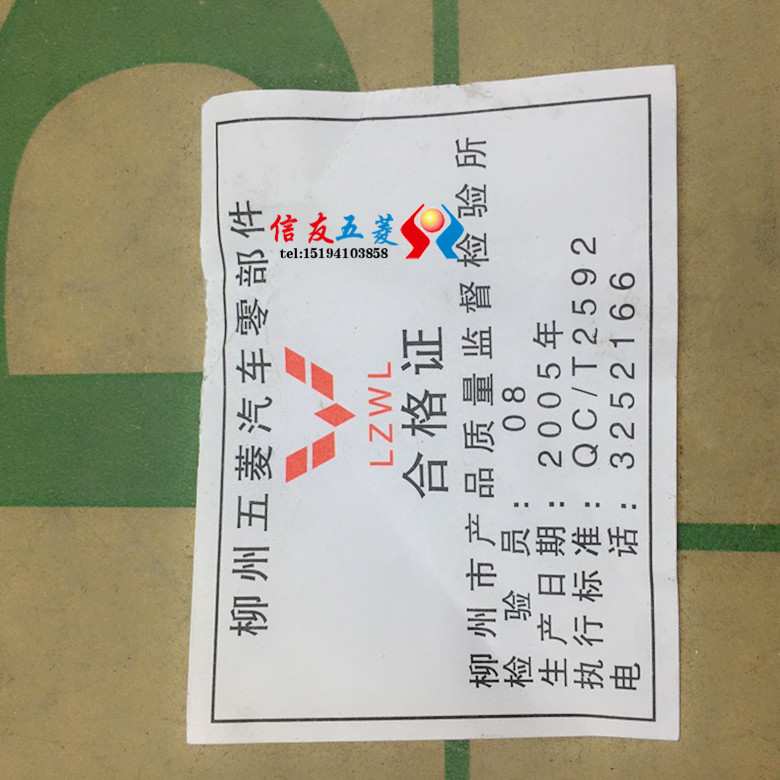 柳州五菱汽车零部件
LZWL
合格证
柳州市产品质量监督检验所
检验员：08
生产日期：2005年
执行标准：QC/T2592
电话：3252166
信友五菱
tel:15194103858